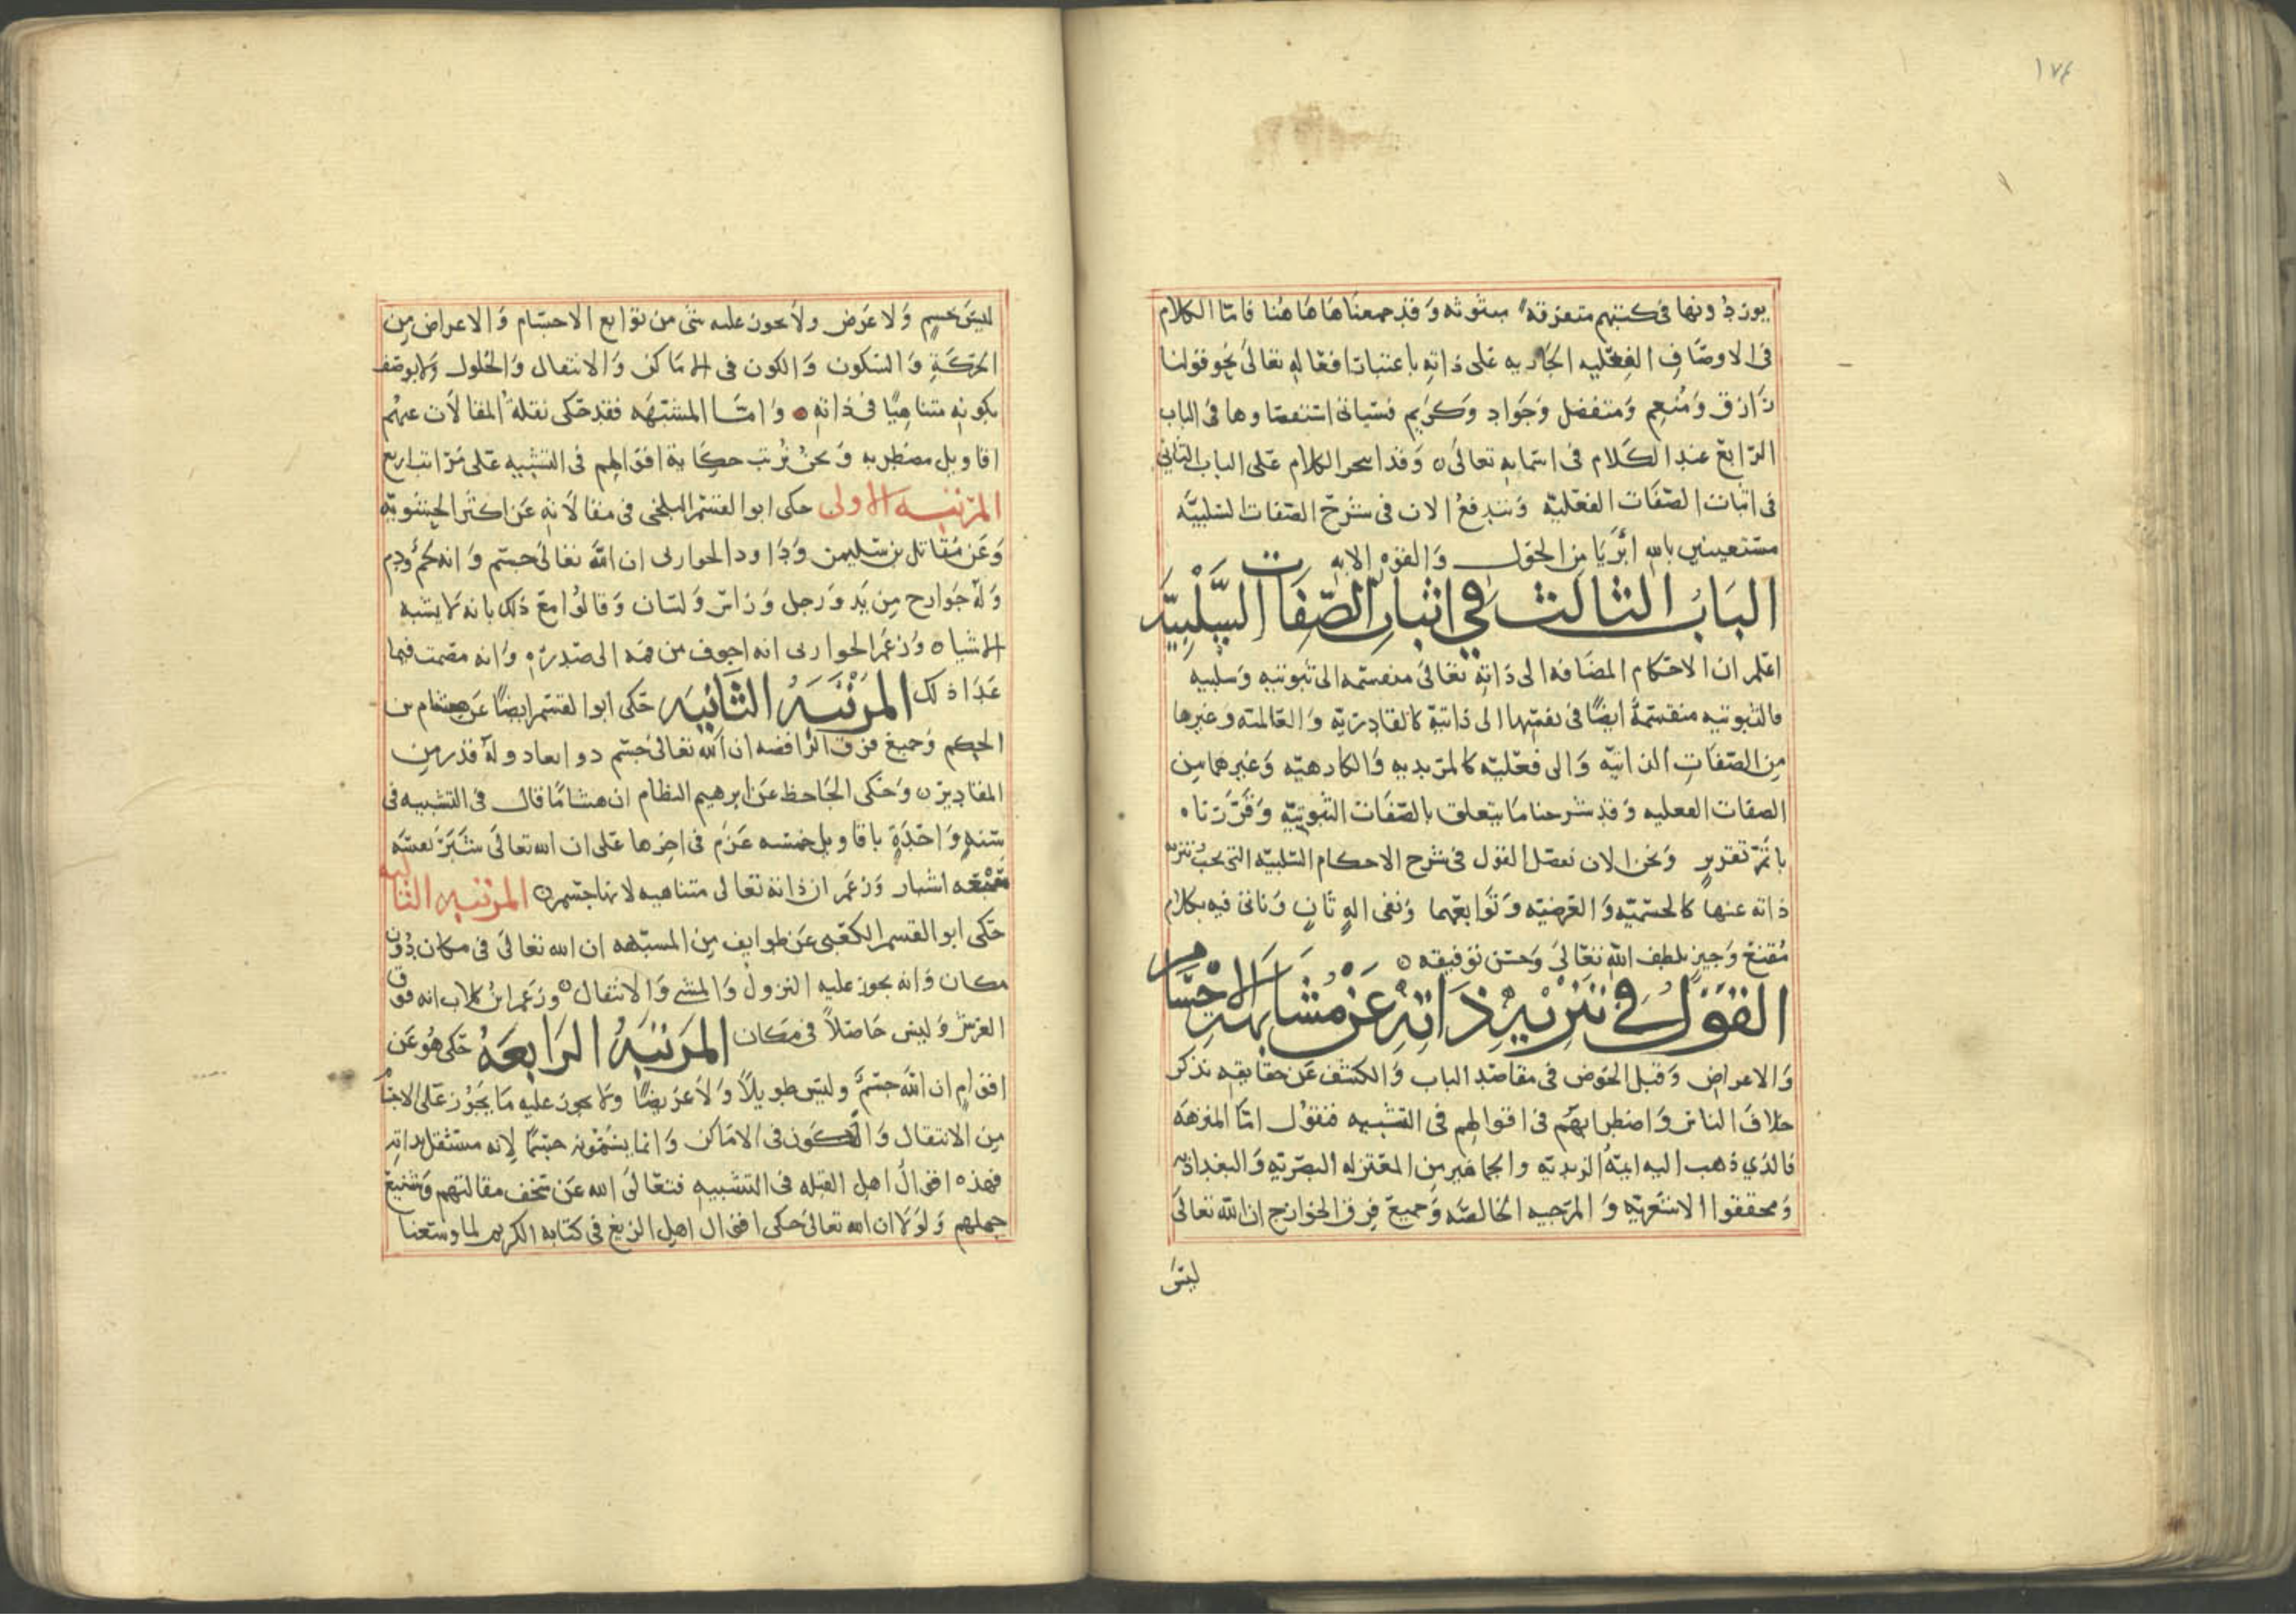 ١٧٤
يوردونها فى كتبهم متفرقة مبثوثه وقد جمعناها هاهنا فامّا الكلام
فى الاوصاف الفعليه الجاريه على ذاته باعتبار افعاله تعالى نحو قولنا
رازق ومنعم ومتفضل وجواد وكريم فسياتى استقصاوها فى الباب
الرابع عند الكلام فى اسمايه تعالى وقد انجز الكلام على الباب الثانى
فى اثبات الصفات الفعليّه وسندفع الان فى شرح الصفات السلبيّه
مستعينين بالله ابريا من الحول والقوه الابه
الباب الثالث في اثبات الصّفات السَّلْبِيَّه
اعلم ان الاحكام المضافه الى ذاته تعالى منقسمه الى ثبوتيه وسلبيه
فالثبوتيه منقسمة ايضًا فى نفسها الى ذاتيّة كالقادريّه والعالميه وغيرها
من الصّفات الذاتيّه والى فعليّه كالمريديه والكارهيّه وغيرهما من
الصفات الفعليه وقد شرحنا ما يتعلق بالصّفات الثبوتيّه وقرّرناه
باتمّ تقرير ونحن الان نفصّل القول فى شرح الاحكام السّلبيّه التى يجب تنزيه
ذاته عنها كالجسميّه والعرضيّه وتوابعهما ونفى اله ثانٍ وناتى فيه بكلام
مُقنع وجيز بلطف الله تعالى وحسن توفيقه
القَوْل في تنزيه ذاته عَنْ مُشابهة الاجسام
والاعراض وقبل الخوض فى مقاصد الباب والكشف عن حقايقه نذكر
خلاف الناس واضطرابهم فى اقوالهم فى التشبيه فنقول امّا المنزهه
فالذي ذهب اليه ايمّة الزيديّه والجماهير من المعتزله البصريّه والبغداديه
ومحققوا الاشعريّه والمرجيه الخالصه وجميع فرق الخوارج ان الله تعالى
ليس
ليس بجسم ولا عرض ولا يجوز عليه شى من توابع الاجسام والاعراض من
الحركة والسكون والكون فى الاماكن والانتقال والحلول ولا يوصف
بكونه متناهيًا فى ذاته وامّا المشبهه فقد حكى نقلة المقالات عنهم
اقاويل مضطربه ونحن نرتب حكاية اقوالهم فى التشبيه على مراتب اربع
المرتبه الاولى حكى ابو القسم البلخى فى مقالاته عن اكثر الحشويّه
وعن مقاتل بن سليمن وداود الحواربى ان الله تعالى جسم وانه لحم ودم
وله جوارح من يد ورجل وراس ولسان وقالوا مع ذلك بانه لا يشبه
الاشيا وزعم الحواربى انه اجوف من فمه الى صدره وانه مصمت فيما
عدا ذلك المرتبة الثانيه حكى ابو القسم ايضًا عن هشام بن
الحكم وجميع فرق الرافضه ان الله تعالى جسم دو ابعاد وله قدر من
المقادير وحكى الجاحظ عن ابرهيم النظام ان هشامًا قال فى التشبيه فى
سنه واحدة باقاويل خمسه عزم فى اخرها على ان الله تعالى بشبر نفسه
سبعه اشبار وزعم ان ذاته تعالى متناهيه لانها جسم المرتبه الثالثه
حكى ابو القسم الكعبى عن طوايف من المشبهه ان الله تعالى فى مكان دون
مكان وانه يجوز عليه النزول والمشى والانتقال وزعم ابن كلاب انه فوق
العرش وليس حاصلاً فى مكان المرتبة الرابعة حكى هو عن
اقوام ان الله جسم وليس طويلاً ولا عريضًا ولا يجوز عليه ما يجوز على الاجسام
من الانتقال والكون فى الاماكن وانما يسمونه جسمًا لانه مستقل بذاته
فهذه اقوال اهل القبله فى التشبيه فتعالى الله عن سخف مقالتهم وشنيع
جهلهم ولولا ان الله تعالى حكى اقوال اهل الزيغ فى كتابه الكريم لما وسعنا